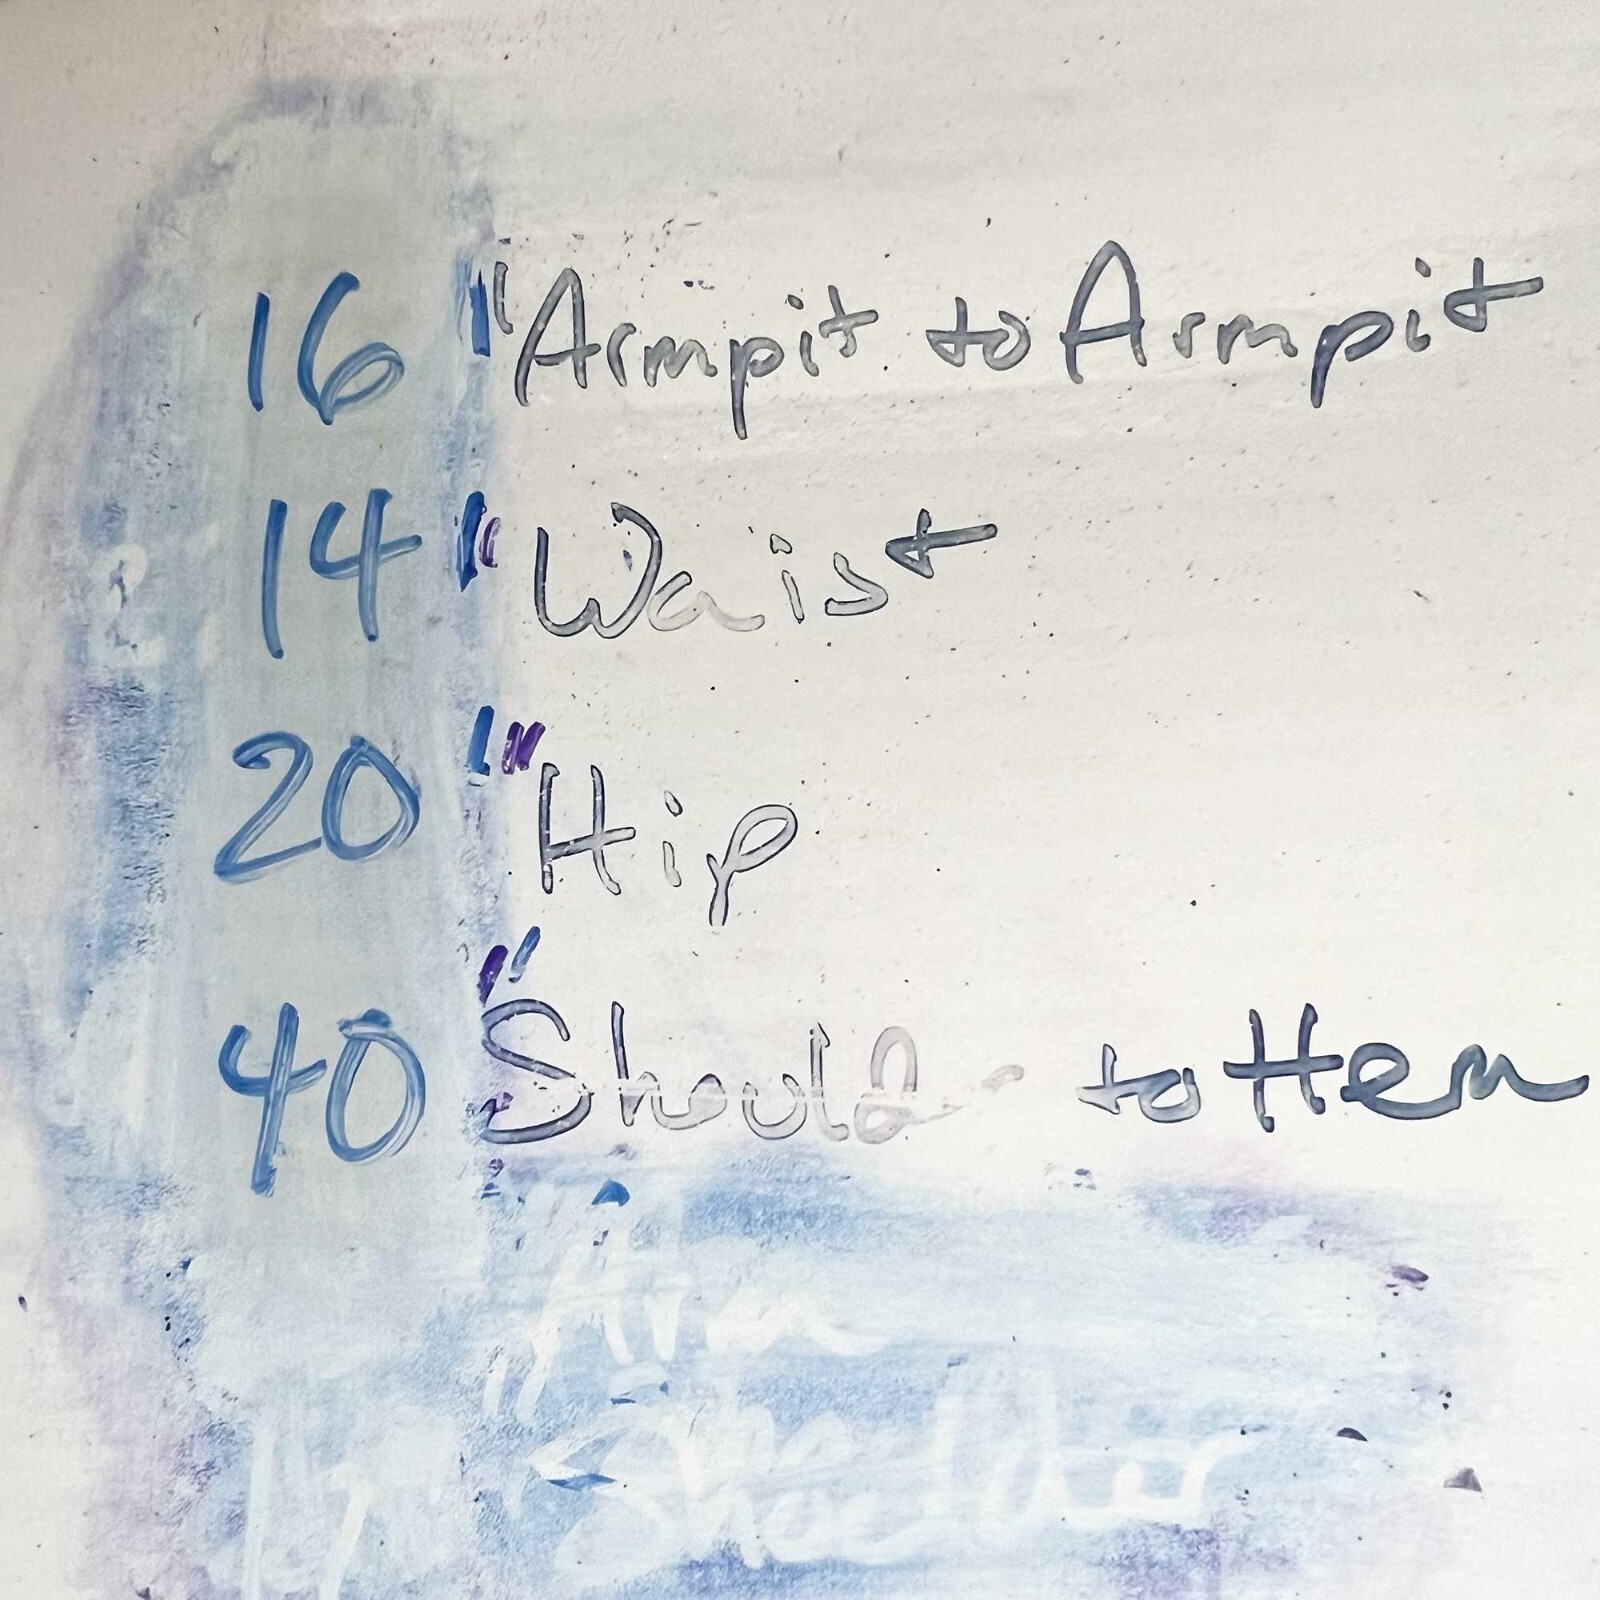 16" Armpit to Armpit
14" Waist
20" Hip
40" Should to Hem
Shoulder